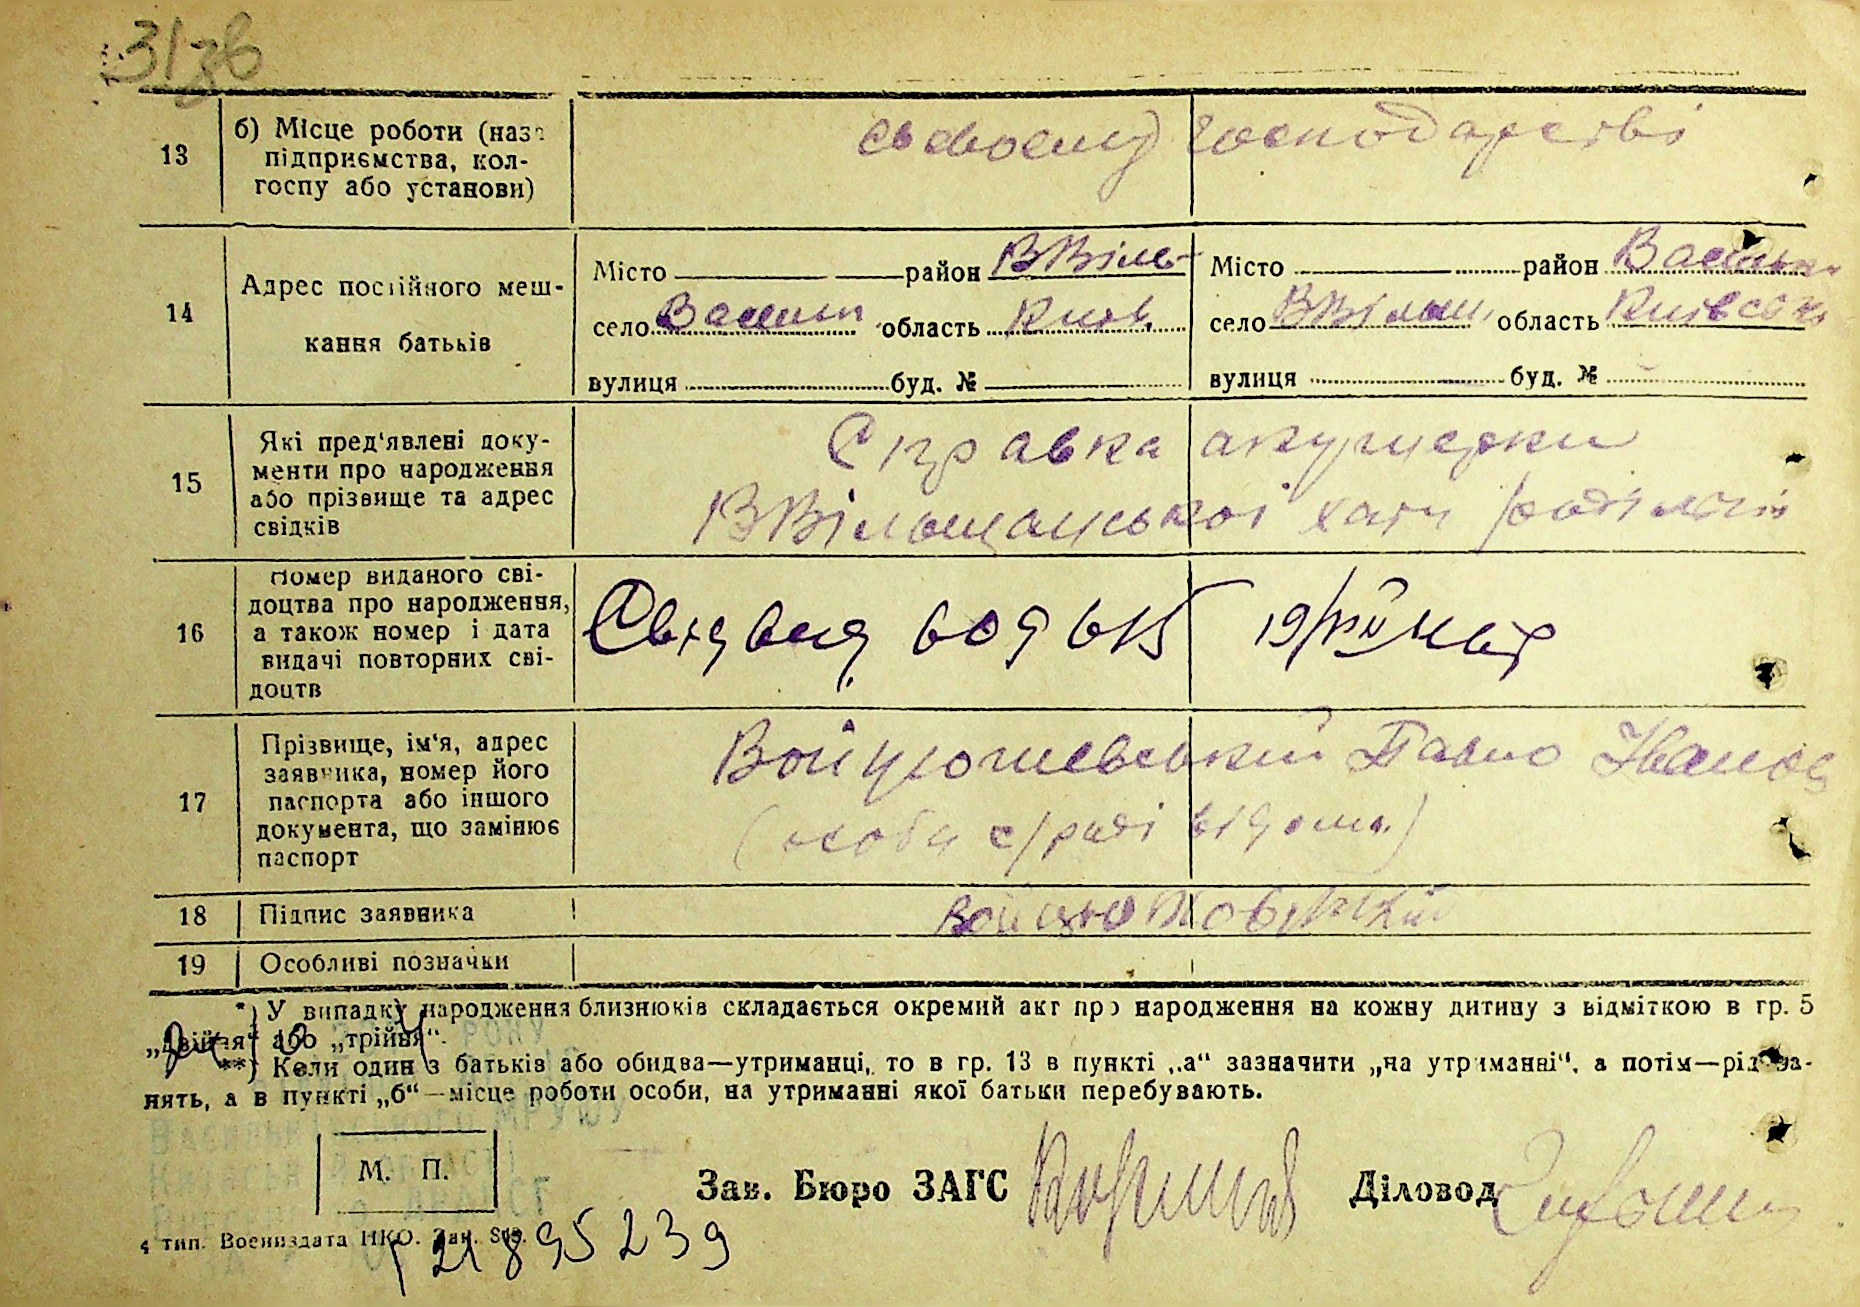 31зв
13
б) Місце роботи (наз
підприємства, кол-
госпу або установи)
своєму господарстві
14
Адрес постійного меш-
кання батьків
Місто район ВВіль-
село Васильк. область Київ.
вулиця буд. №
Місто район Васильк
село ВВільш. область Київськ
вулиця буд. №
15
Які пред'явлені доку-
менти про народження
або прізвище та адрес
свідків
Справка акушерки
ВВільшанської хати
16
Номер виданого сві-
доцтва про народження,
а також номер і дата
видачі повторних сві-
доцтв
17
Прізвище, ім'я, адрес
заявника, номер його
паспорта або іншого
документа, що замінює
паспорт
Павло Іванов
(особа с/раді відома)
18
Підпис заявника
19
Особливі позначки
*) У випадку народження близнюків складається окремий акт про народження на кожну дитину з відміткою в гр. 5
„двійня“ або „трійня“.
**) Коли один з батьків або обидва—утриманці, то в гр. 13 в пункті „а“ зазначити „на утриманні“, а потім—рід за-
нять, а в пункті „б“—місце роботи особи, на утриманні якої батьки перебувають.
М. П.
Зав. Бюро ЗАГС
Діловод
4 тип. Воениздата НКО. Зак.
21895239